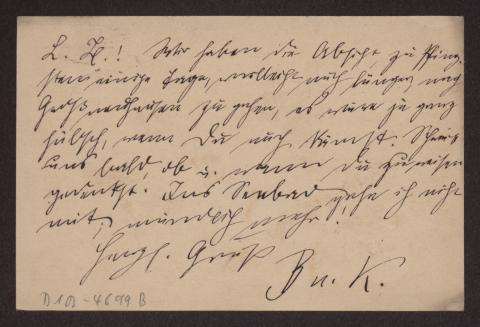 L. H.! Wir haben die Absicht, zu Pfing-
sten einige Tage, vielleicht auch länger, nach
Großneuhausen zu gehen, es wäre ja ganz
hübsch, wenn Du auch kämst. Schreib
uns bald, ob u. wann Du zu reisen
gedenkst. Ins Seebad gehe ich nicht
mit, mündlich mehr.
Herzl. Gruß
Bu. K.
D 102-4699 B